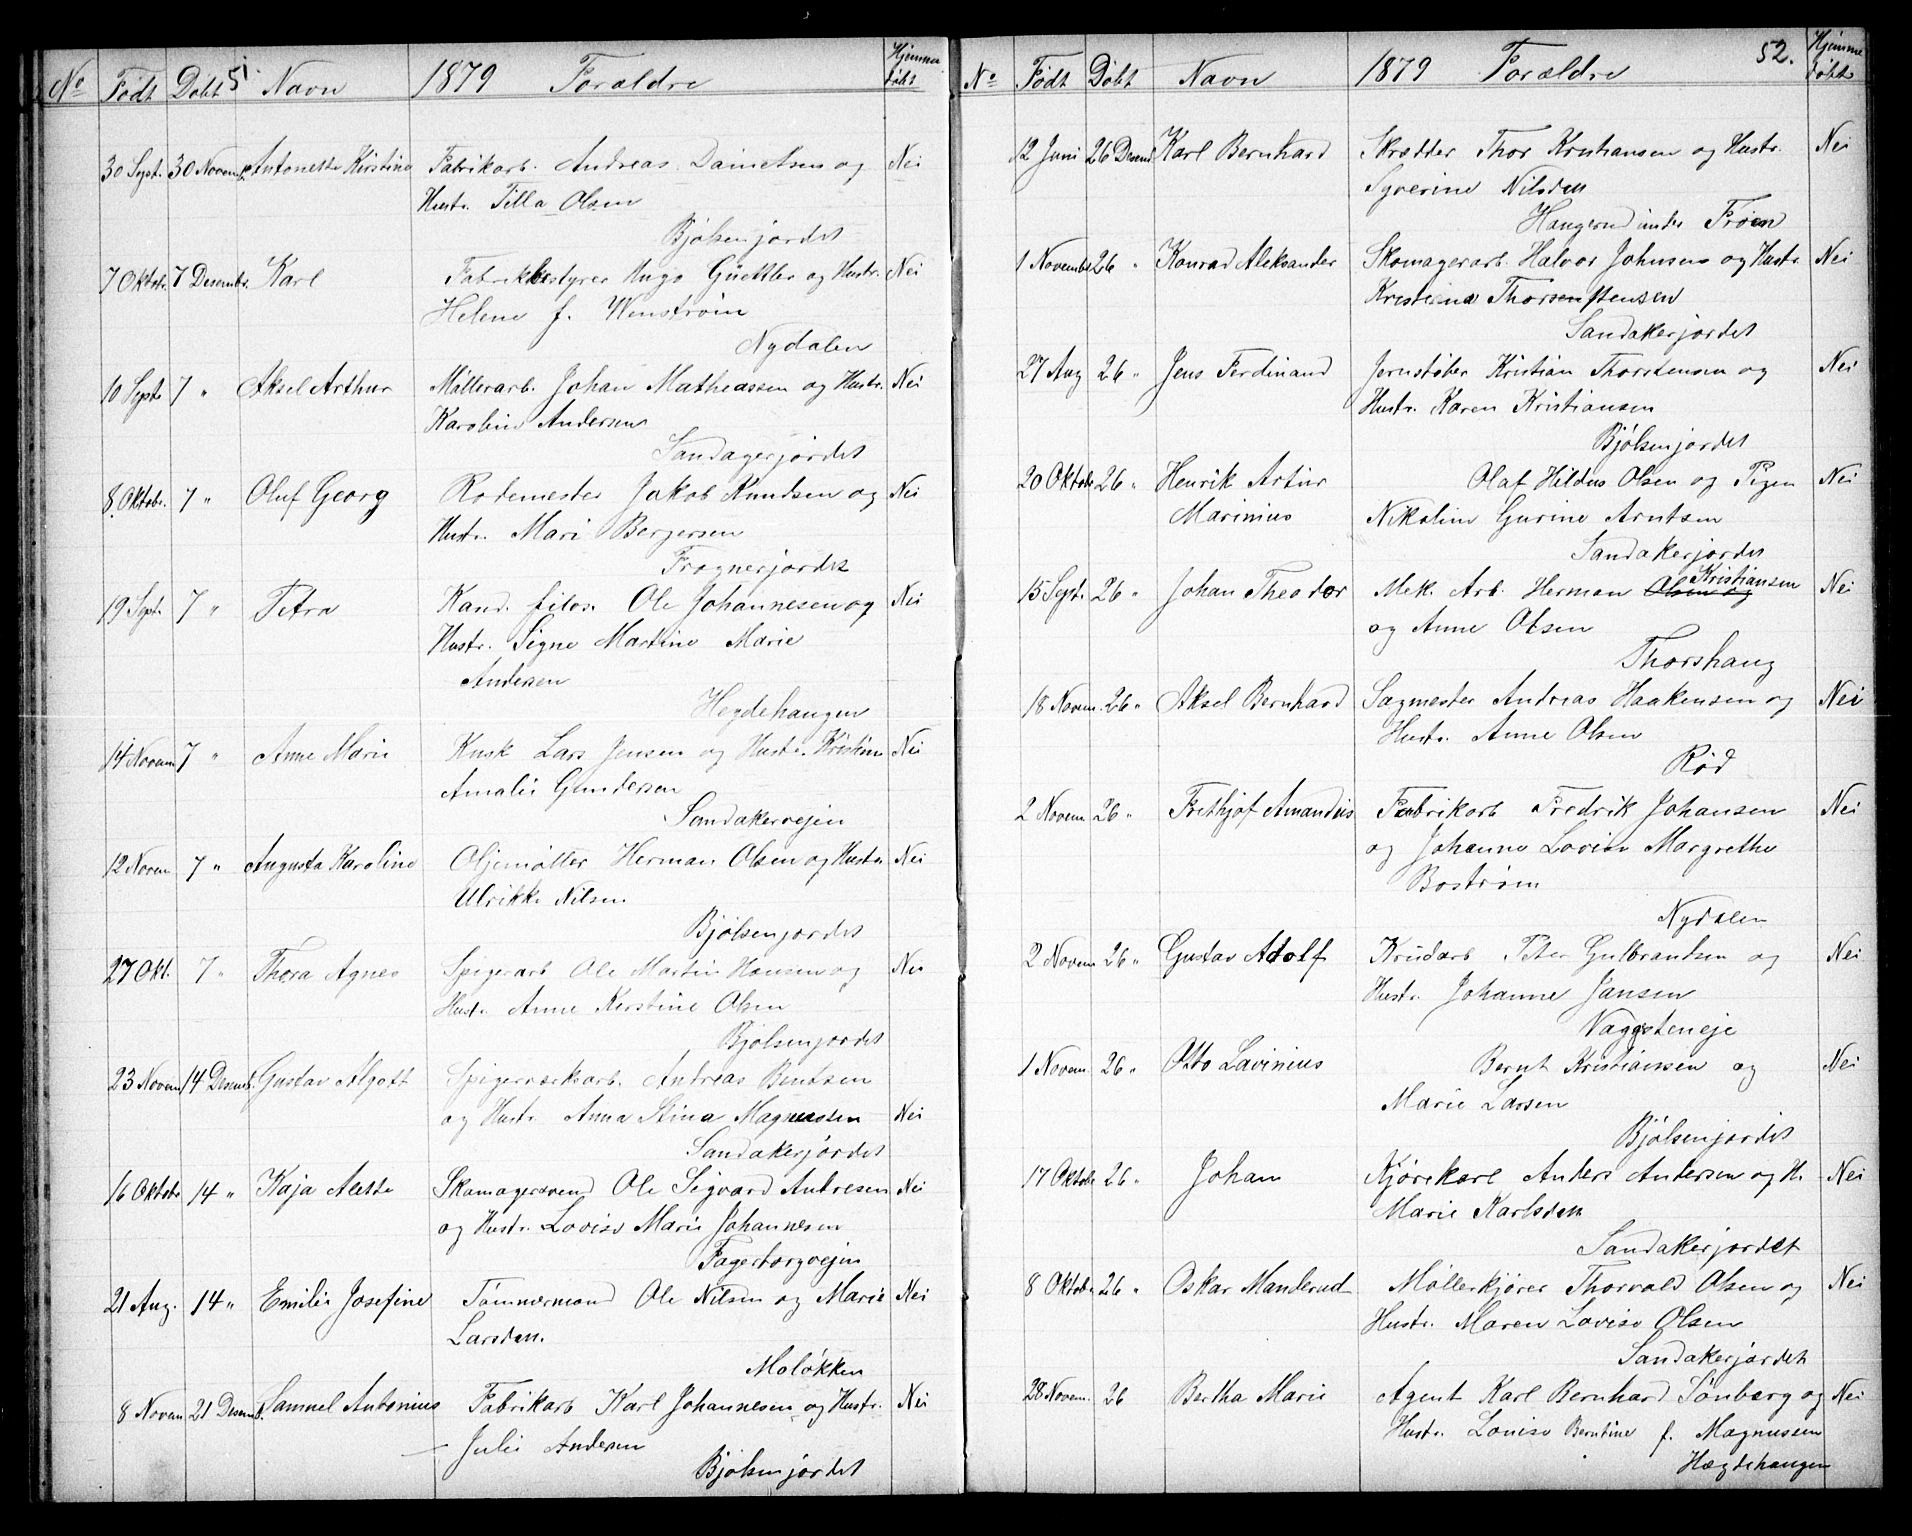 No Født Døbt 51. Navn 1879 Forældre Hjemme døbt
30 Sept. 30 Novemb. Antonette Kirstine Fabrikarb. Andreas Danielsen og Nei
Hustr. Tilla Olsen
Bjølsenjordet
7 Oktob. 7 Desembr. Karl Fabrikbestyrer Hugo Güettler og Hustr. Nei
Helene f. Wenstrøm
Nydalen
10 Sept. 7 " Aksel Arthur Møllerarb. Johan Matheassen og Hustr. Nei
Karoline Andersen
Sandagerjordet
8. Oktob. 7 " Oluf Georg Rodemester Jakob Knudsen og Nei
Hustr. Mari Bergersen
Frognerjordet
19 Sept. 7 " Petra Kand. filos. Ole Johannesen og Nei
Hustr. Signe Martine Marie
Andersen
Hegdehaugen
14 Novem 7 " Anne Marie Kusk Lars Jensen og Hustr. Kristine Nei
Amalie Gundersen
Sandakervejen
12 Novem 7 " Augusta Karoline Oljemøller Herman Olsen og Hustr. Nei
Ulrikke Nilsen
Bjølsenjordet
27 Okt. 7 " Thora Agnes Spigerarb Ole Martin Hansen og Nei
Hustr. Anne Kirstine Olsen
Bjølsenjordet
23 Novem 14 Desemb. Gustav Algott Spigerværksarb. Andreas Bentsen
og Hustr. Anna Stina Magnussen Nei
Sandakerjordet
16 Oktobr 14 " Kaja Alette Skomagersvend Ole Sigvard Andresen Nei
og Hustr. Lovise Marie Johannesen
Fagerborgvejen
21 Aug. 14 " Emilie Josefine Tømmermand Ole Nilsen og Marie Nei
Larsden.
Moløkken
8 Novem 21 Desemb. Samuel Antonius Fabrikarb Karl Johannesen og Hustr. Nei
Julie Andersen
Bjølsenjordet
No Født Døbt Navn 1879 Forældre 52. Hjemme døbt
12 Juni 26 Desemb Karl Bernhard Skrædder Thor Kristiansen og Hustr. Nei
Syverine Nilsden
Haugerud under Frøen
1 Novembr 26 " Konrad Aleksander Skomagerarb. Halvor Johnsen og Hustr. Nei
Kristiana Thorstensen
Sandakerjordet
27 Aug 26 " Jens Ferdinand Jernstøber Kristian Thorstensen og Nei
Hustr. Karen Kristiansen
Bjølsenjordet
20 Oktob 26 " Henrik Artur Olaf Hildus Olsen og Pigen Nei
Marinius Nikoline Gurine Arntsen
Sandakerjordet
15 Sept. 26 " Johan Theodor Mek. Arb. Herman Olsen og Kristiansen Nei
og Anne Olsen
Thorshaug
18 Novem. 26 " Aksel Bernhard Sagmester Andreas Haakensen og Nei
Hustr. Anne Olsen
Rød
2 Novem 26 " Frithjof Amandus Fabrikarb Fredrik Johansen Nei
og Johanne Lovise Margrethe
Bostrøm
Nydalen
2 Novem 26 " Gustav Adolf Krudarb Peter Gulbrandsen og Nei
Hustr. Johanne Jansen
Vaggsteneje
1 Novem. 26 " Otto Lavinius Bernt Kristiansen og Nei
Marie Larsen
Bjølsenjordet
17 Oktob 26 " Johan Kjørekarl Anders Andersen og H. Nei
Marie Karlsden
Sandakerjordet
8 Oktob. 26 " Oskar Manderud Møllerkjører Thorvald Olsen og Nei
Hustr. Maren Lovise Olsen
Sandakerjordet
28 Novem. 26 Bertha Marie Agent Karl Bernhard Tønberg og Nei
Hustr. Louise Berntine f. Magnussen
Hægdehaugen